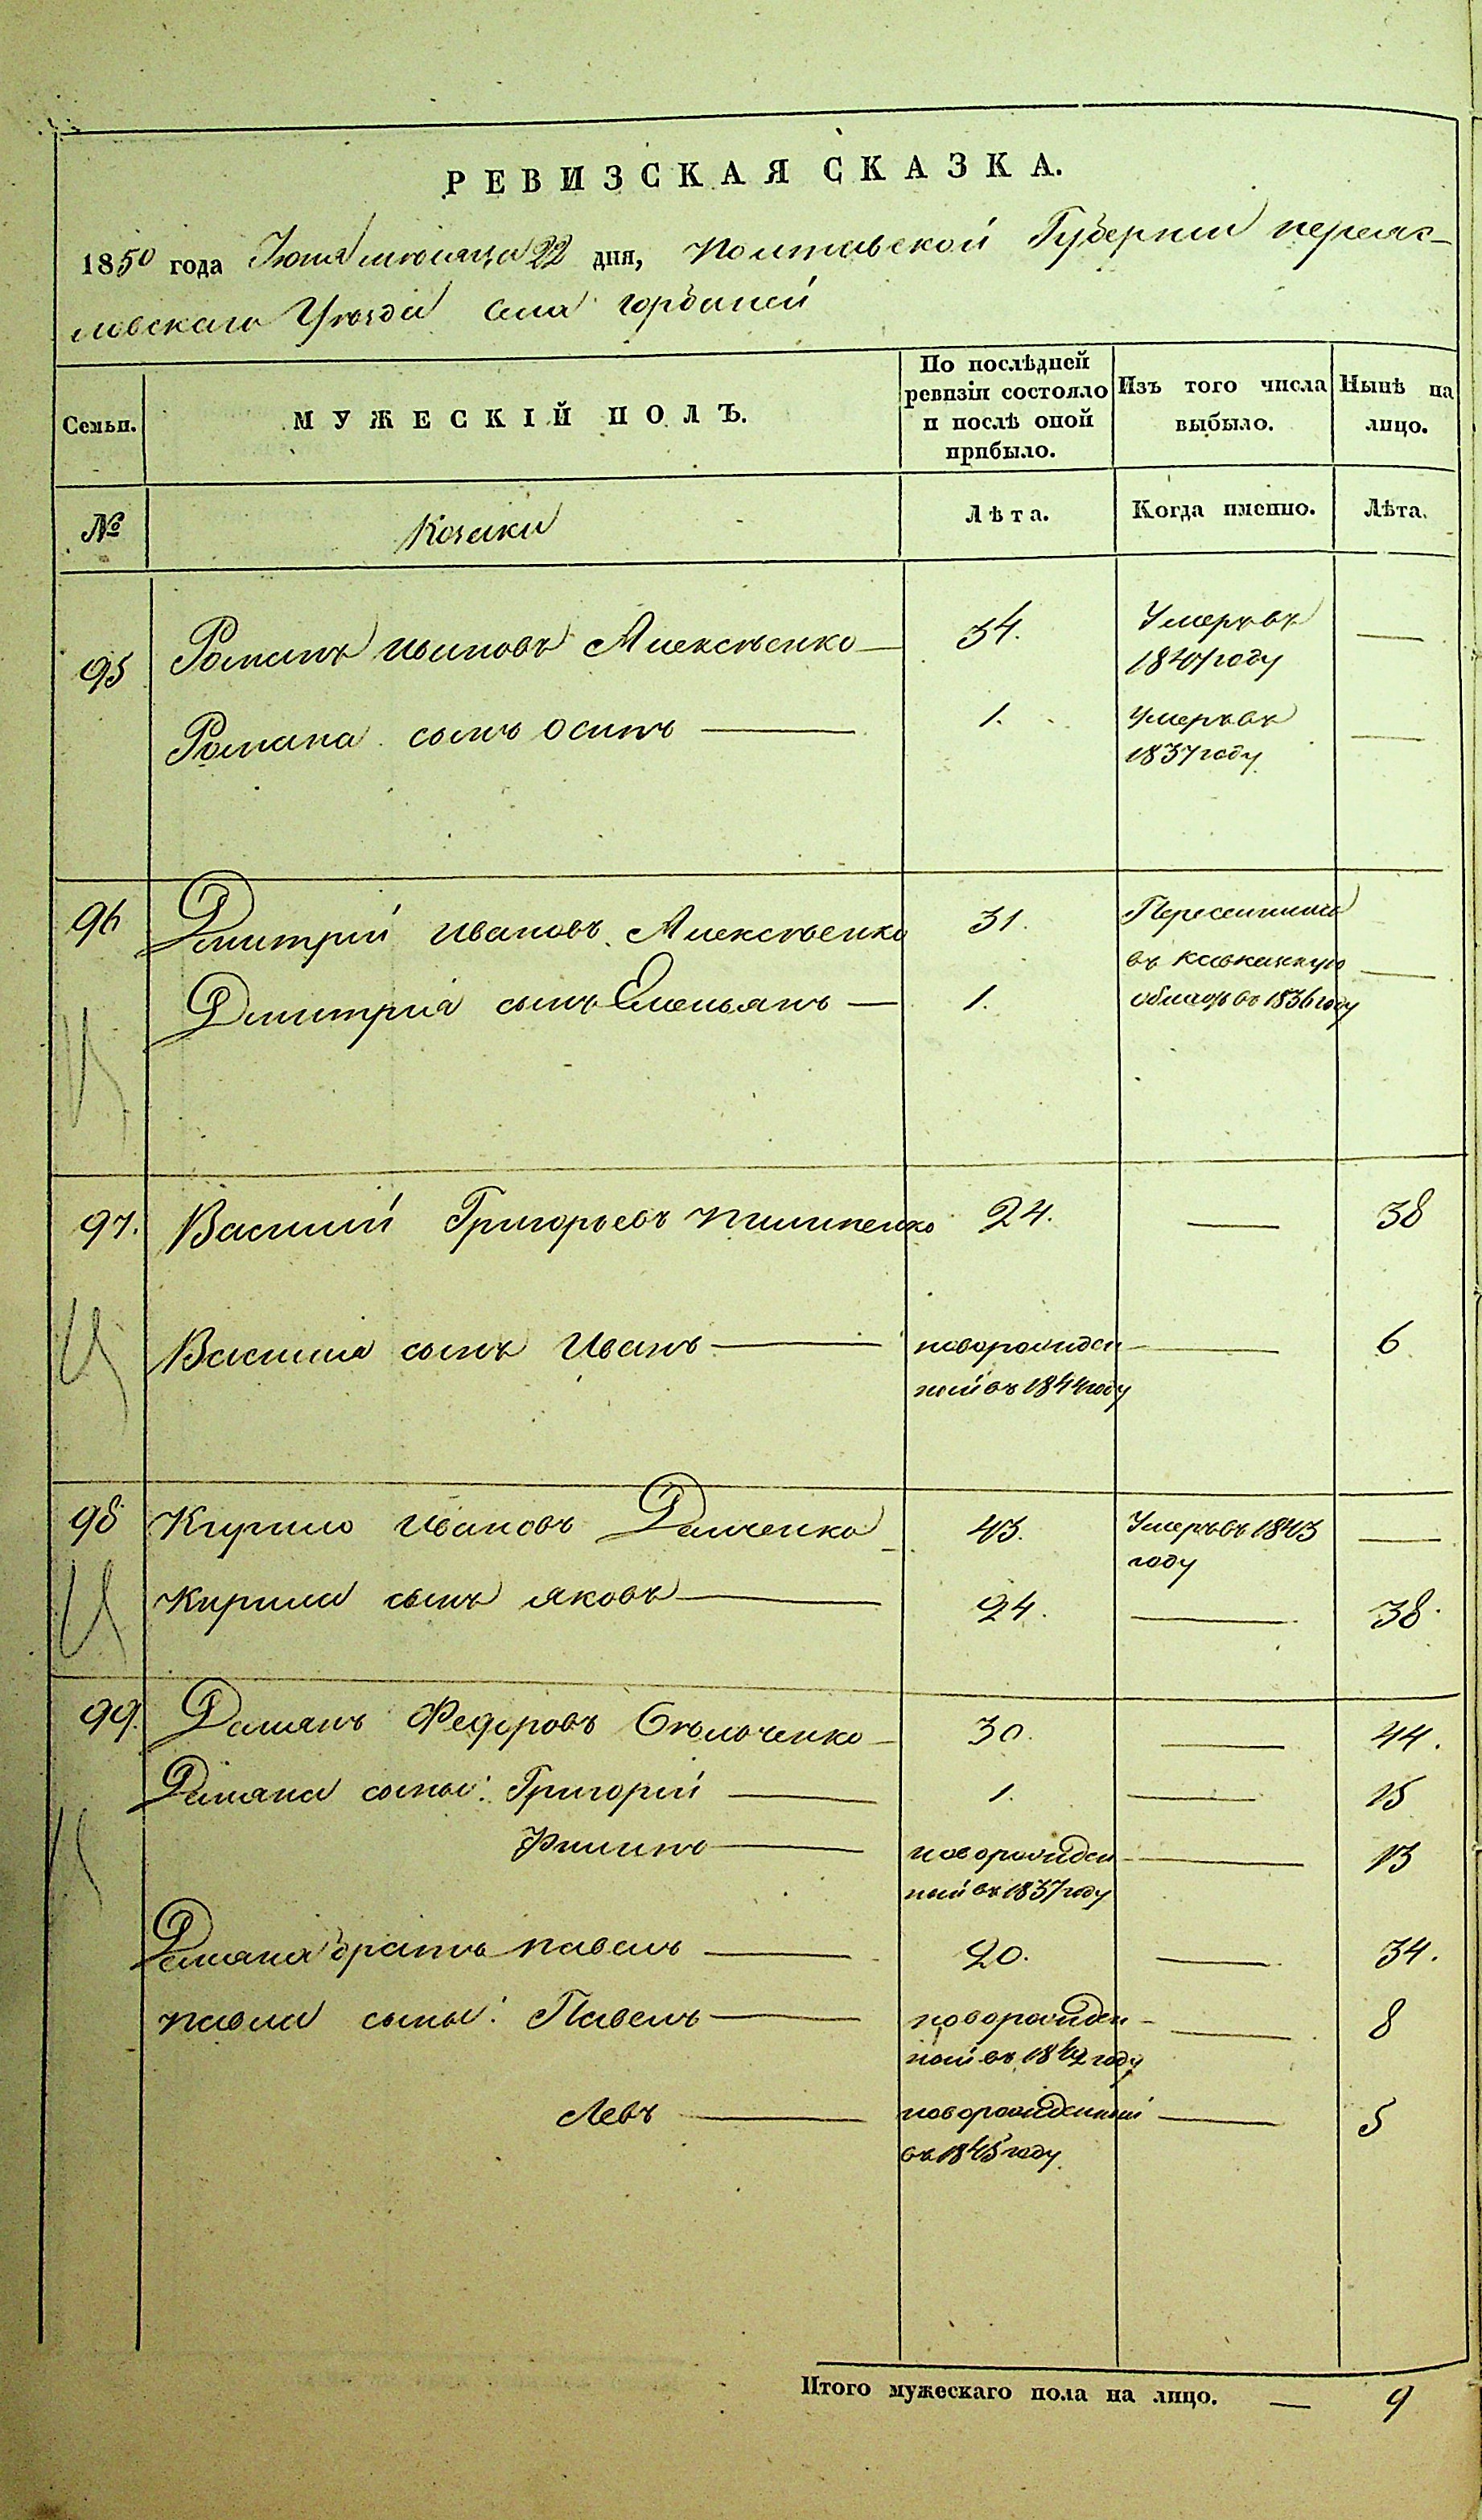 РЕВИЗСКАЯ СКАЗКА.
1850 года Июня месяца 22 дня, Полтавской Губернии переяс-
лавскаго Уѣзда Села горбаней
Семьи. МУЖЕСКІЙ ПОЛЪ. По послѣдней ревизіи состояло и послѣ оной прибыло. Изъ того числа выбыло. Нынѣ на лицо.
№ Козаки Лѣта. Когда именно. Лѣта.
95 Романъ ивановъ Алексѣенко — 34. Умеръ въ —
1841 году
Романа сынъ осипъ — 1. Умеръ въ —
1837 году
96 Дмитрій ивановъ Алексѣенко 31. Переселились
въ кавказкую —
Дмитрія сынъ Емельянъ — 1. область въ 1836 году
97. Василій Григорьевъ пилипенко 24. — 38
Василия сынъ Иванъ — новорожден — 6
ный въ 1844 году
98 Кирило Ивановъ Демченко 43. Умеръ въ 1843 —
году
Кирила сынъ яковъ — 24. — 38.
99. Демянъ Федоровъ — 30. — 44.
Демяна сыны: Григорій — 1. — 15
Филипъ — новорожден — 13
ный въ 1837 году
Демяна братъ павелъ — 20. — 34.
павла сыны: Павелъ — новорожден — 8
ный въ 1842 году
Левъ — новорожденный — 5
въ 1845 году
Итого мужескаго пола на лицо. — 9